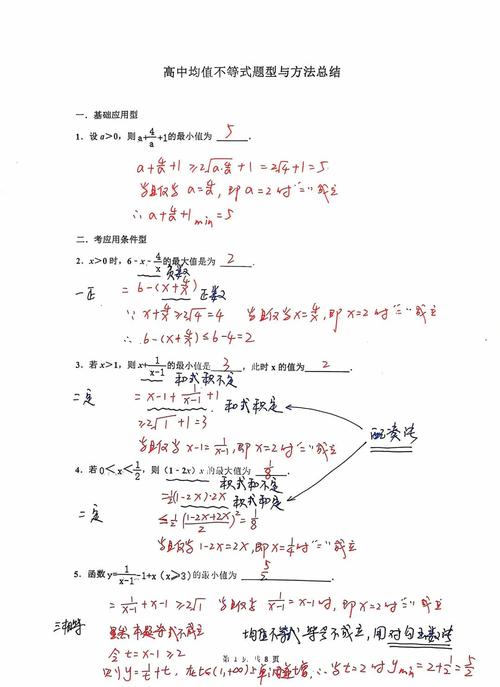 高中均值不等式题型与方法总结
一．基础应用型
1．设 a＞0，则 a+4/a+1的最小值为 5 ．
a+4/a+1≥2√(a·4/a)+1=2√4+1=5
当且仅当 a=4/a，即 a=2 时“=”成立
∴ a+4/a+1 min=5
二．考应用条件型
2．x＞0 时，6﹣x﹣4/x的最大值是为 2 ．
负数
一正 = 6-(x+4/x) 正数
∵ x+4/x≥2√4=4 当且仅当x=4/x，即x=2时“=”成立
∴ 6-(x+4/x)≤6-4=2
3．若 x＞1，则 x+1/(x-1)的最小值是 3 ，此时 x 的值为 2 ．
和式积不定
二定 = x-1+1/(x-1)+1 和式积定
≥2√1+1=3
配凑法
当且仅当 x-1=1/(x-1)，即x=2时“=”成立
4．若 0＜x＜1/2，则（1﹣2x）x 的最大值为 1/8 ．
积式和不定
=1/2(1-2x)·2x 积式和定
二定 ≤1/2[(1-2x+2x)/2]²=1/8
当且仅当 1-2x=2x，即x=1/4时“=”成立
5．函数 y=1/(x-1)-1+x（x≥3）的最小值为 5/2 ．
= 1/(x-1)+x-1≥2√1 当且仅当 1/(x-1)=x-1时，即x=2时“=”成立
三相等 显然本题等式不成立 均值不等式等号不成立，用对勾函数法
令t=x-1≥2
则y=1/t+t，在t∈(1,+∞)上单调递增，∴当t=2时 y min=2+1/2=5/2
第 1 页，共 8 页